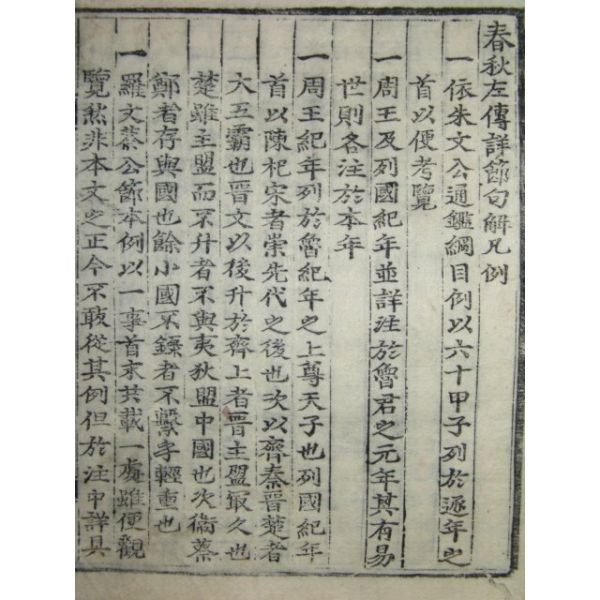 春秋左傳詳節句解凡例
一依朱文公通鑑綱目例以六十甲子列於逐年之
首以便考覽
一周王及列國紀年並詳注於魯君之元年其有易
世則各注於本年
一周王紀年列於魯紀年之上尊天子也列國紀年
首以陳杞宋者崇先代之後也次以齊秦晋楚者
大五霸也晋文以後升於齊上者晋主盟㝡久也
楚雖主盟而不升者不與夷狄盟中國也次衞蔡
鄭者存與國也餘小國不錄者不繫乎輕重也
一羅文蔡公節本例以一事首末共載一處雖便觀
覽然非本文之正今不敢從其例但於注中詳具